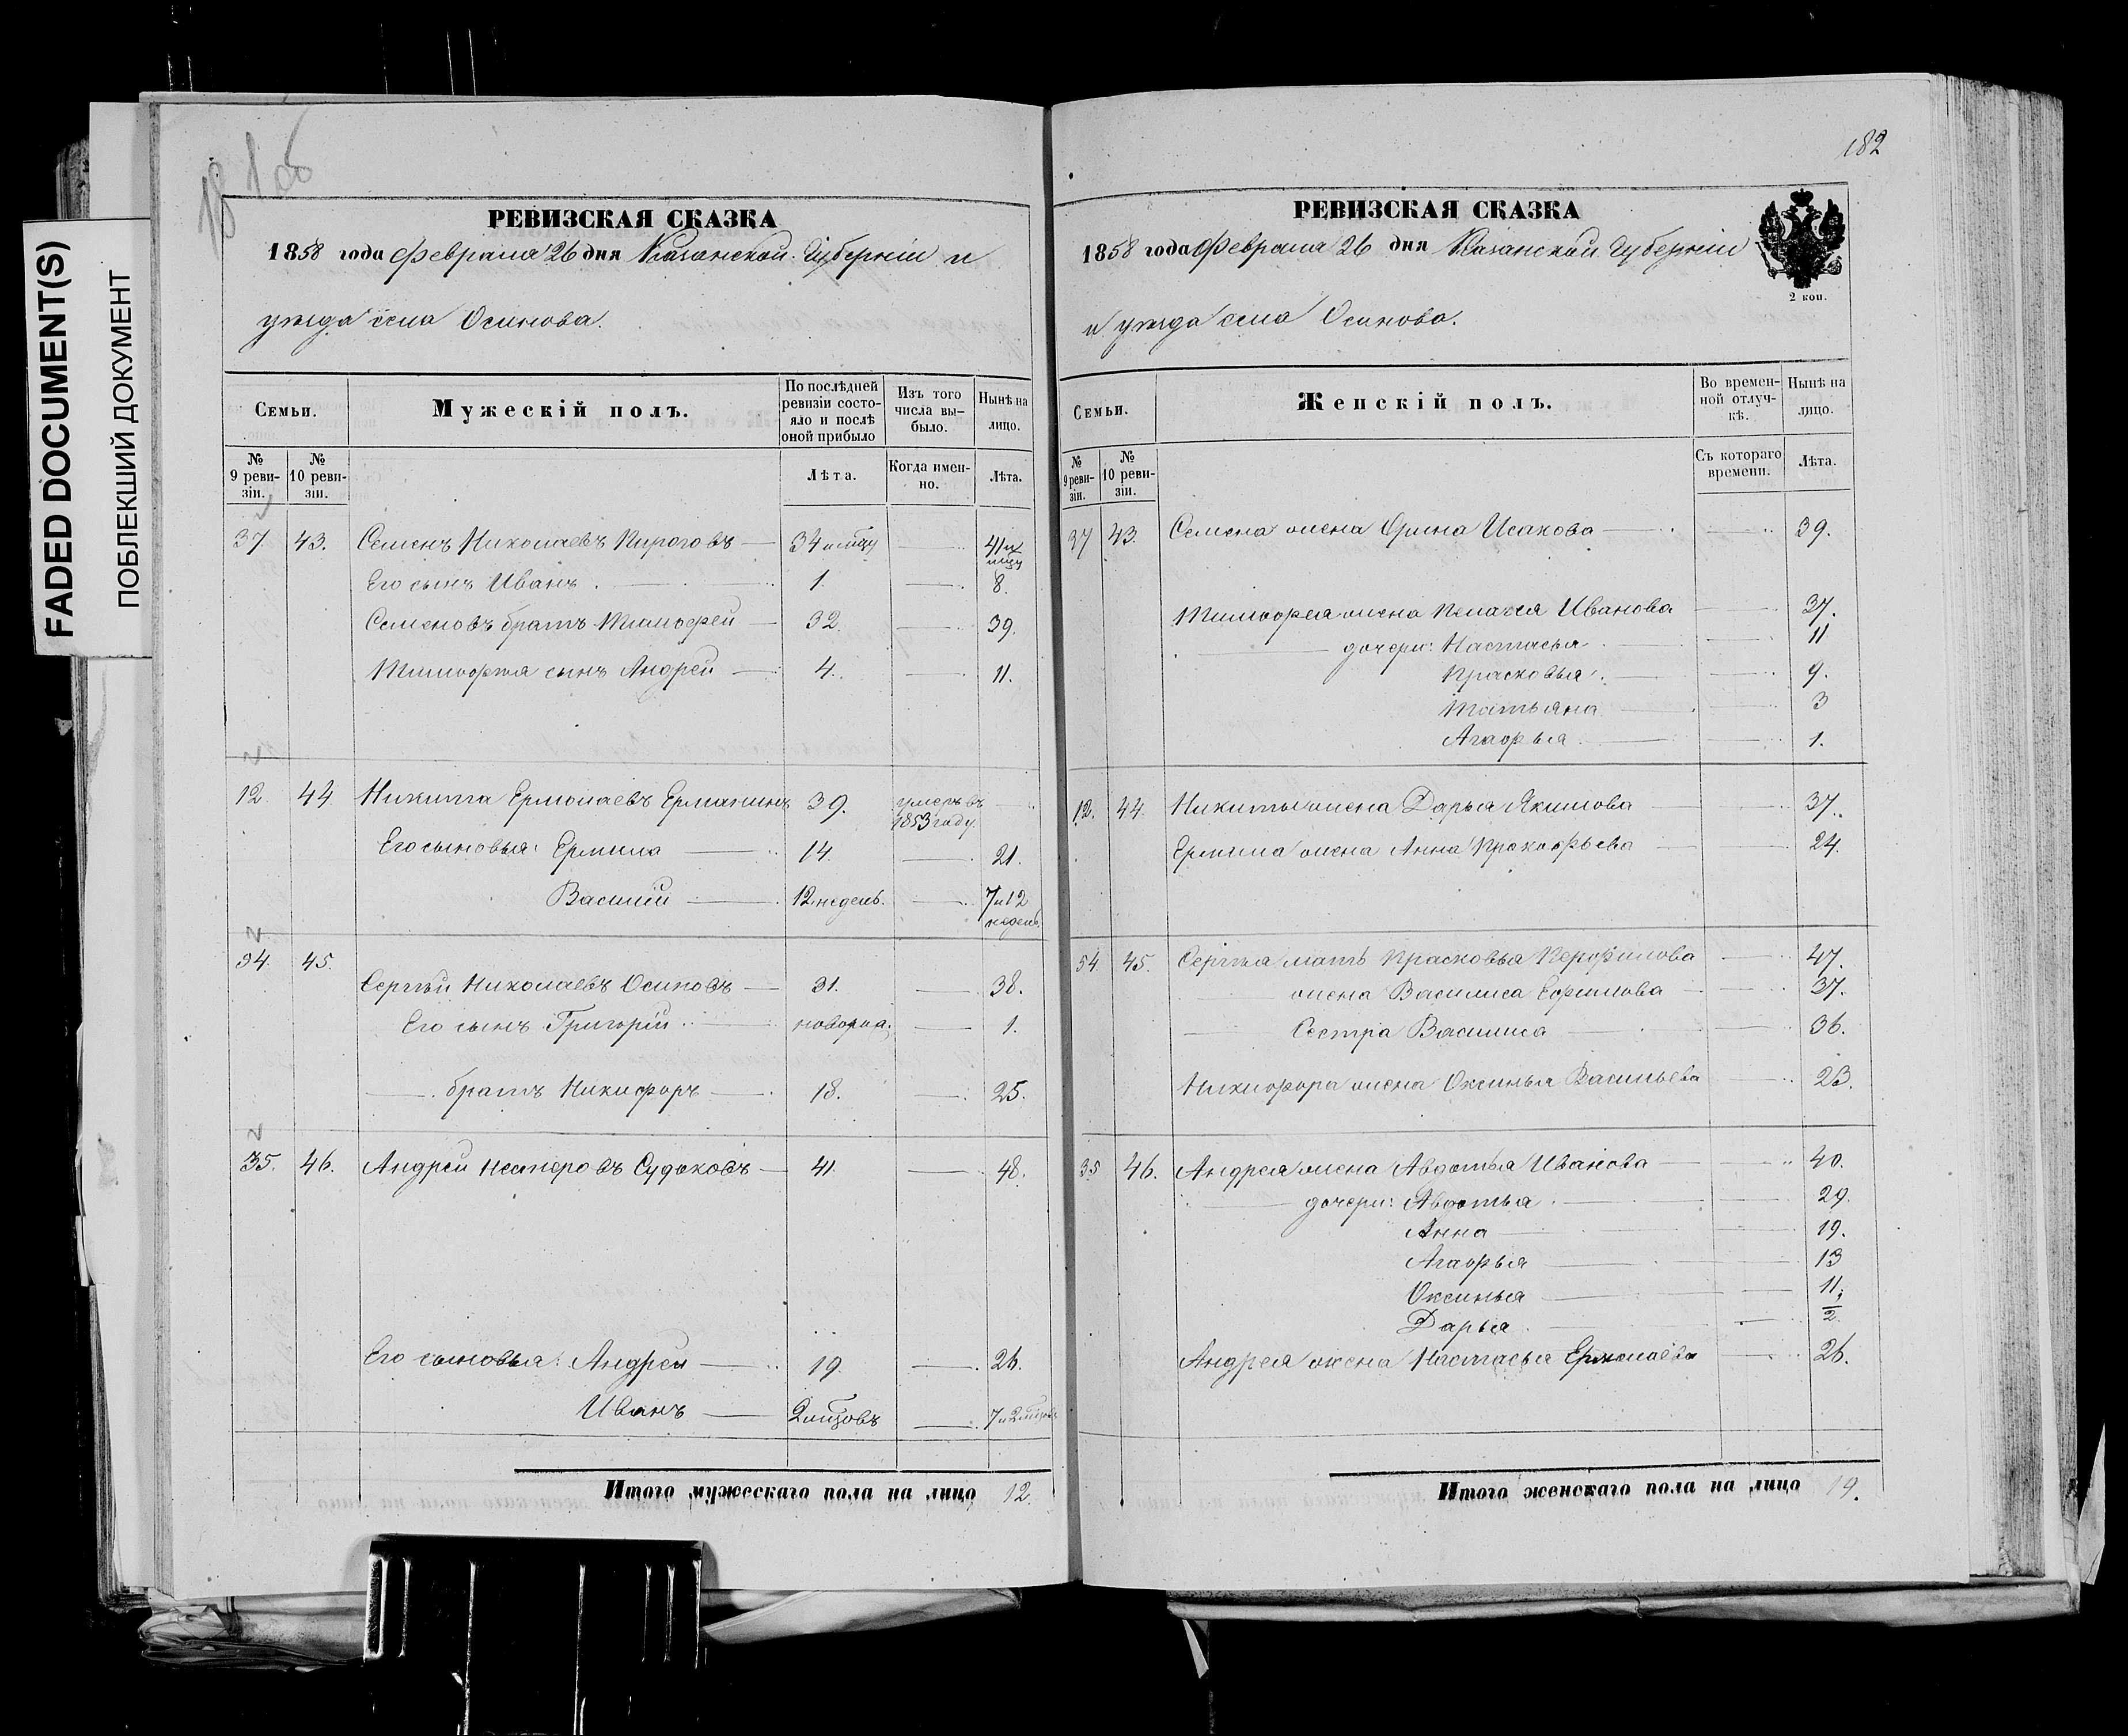 FADED DOCUMENT(S)
ПОБЛЕКШИЙ ДОКУМЕНТ
181об
РЕВИЗСКАЯ СКАЗКА
1858 года Февраля 26 дня Казанской Губерніи и
уѣзда села Осинова.
Семьи.
Мужескій полъ.
По послѣдней ревизіи состояло и послѣ оной прибыло
Изъ того числа выбыло.
Нынѣ на лицо.
№ 9 ревизіи.
№ 10 ревизіи.
Лѣта.
Когда именно.
Лѣта.
37 43. Семенъ Николаевъ Пироговъ 34 41
Его сынъ Иванъ. 1. 8.
Семеновъ братъ Тимофей 32. 39.
Тимофея сынъ Андрей 4. 11.
12. 44 Никита Ермолаевъ Ермакинъ 39. умеръ въ 1853 году.
Его сыновья: Ермила 14. 21.
Василій 12 недель. 7 и 12 недель
34. 45. Сергѣй Николаевъ Осиповъ 31. 38.
Его сынъ Григорій новорож. 1.
братъ Никифоръ 18. 25.
35. 46. Андрей Нестеровъ Судаковъ 41. 48.
Его сыновья: Андрей 19. 26.
Иванъ 2 мѣцовъ 7 и 2 мѣцовъ
Итого мужескаго пола на лицо 12.
182
РЕВИЗСКАЯ СКАЗКА
1858 года Февраля 26 дня Казанской Губерніи
2 коп.
и уѣзда села Осинова.
Семьи.
Женскій полъ.
Во временной отлучкѣ.
Нынѣ на лицо.
№ 9 ревизіи.
№ 10 ревизіи.
Съ котораго времени.
Лѣта.
37 43. Семена жена Орина Исакова 39.
Тимофея жена Пелагея Иванова 37.
дочери: Настасья 11
Прасковья. 9.
Татьяна 3
Агафья. 1.
12. 44. Никиты жена Дарья Якимова 37.
Ермила жена Анна Прокофьева 24.
34 45. Сергѣя мать Прасковья 47.
жена Василиса Ефимова 37.
Сестра Василиса 36.
Никифора жена Оксинья Васильева 23.
35 46. Андрея жена Авдотья Иванова 40.
дочери: Авдотья 29.
Анна 19.
Агафья 13
Оксинья 11.
Дарья. 2
Андрея жена Настасья Ермолаева 26.
Итого женскаго пола на лицо 19.